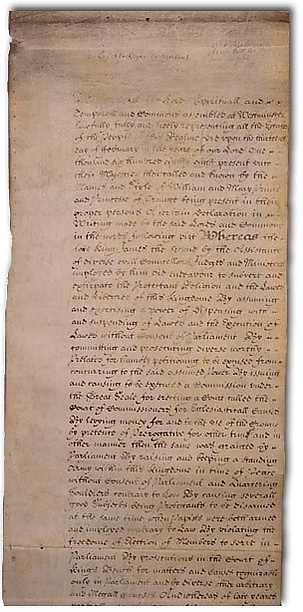 Lords Spirituall and
Temporall and Commons assembled at Westminster
lawfully fully and freely representing all the Estates
of the People of this Realme did upon the thirteenth
day of February in the yeare of our Lord One
thousand six hundred eighty eight present unto
their Majesties then called and known by the
Names and Stile of William and Mary Prince
and Princesse of Orange being present in their
proper persons A certain Declaration in
Writing made by the said Lords and Commons
in the words following viz Whereas the
late King James the second by the Assistance
of diverse evill Councellors Judges and Ministers
imployed by him did endeavour to subvert and
extirpate the Protestant Religion and the Lawes
and Liberties of this Kingdome By assuming
and exercising a power of dispensing with
and suspending of Lawes and the Execution of
Lawes without consent of Parliament By
committing and prosecuting diverse worthy
Prelates for humbly petitioning to be excused from
concurring to the said assumed Power By issuing
and causing to be executed a Commission under
the Great Seale for erecting a Court called the
Court of Commissioners for Ecclesiasticall Causes
By levying money for and to the use of the Crowne
by pretence of Prerogative for other time and in
other manner then the same was granted by
Parliament By raising and keeping a standing
Army within this Kingdome in time of Peace
without Consent of Parliament and Quartering
Souldiers contrary to Law By causing severall
good Subjects being Protestants to be disarmed
at the same time when Papists were both armed
and imployed contrary to Law By violating the
freedome of Election of Members to serve in
Parliament By prosecutions in the Court of
Kings Bench for matters and causes cognizable
only in Parliament and by diverse other arbitrary
and illegall courses And whereas of late yeares